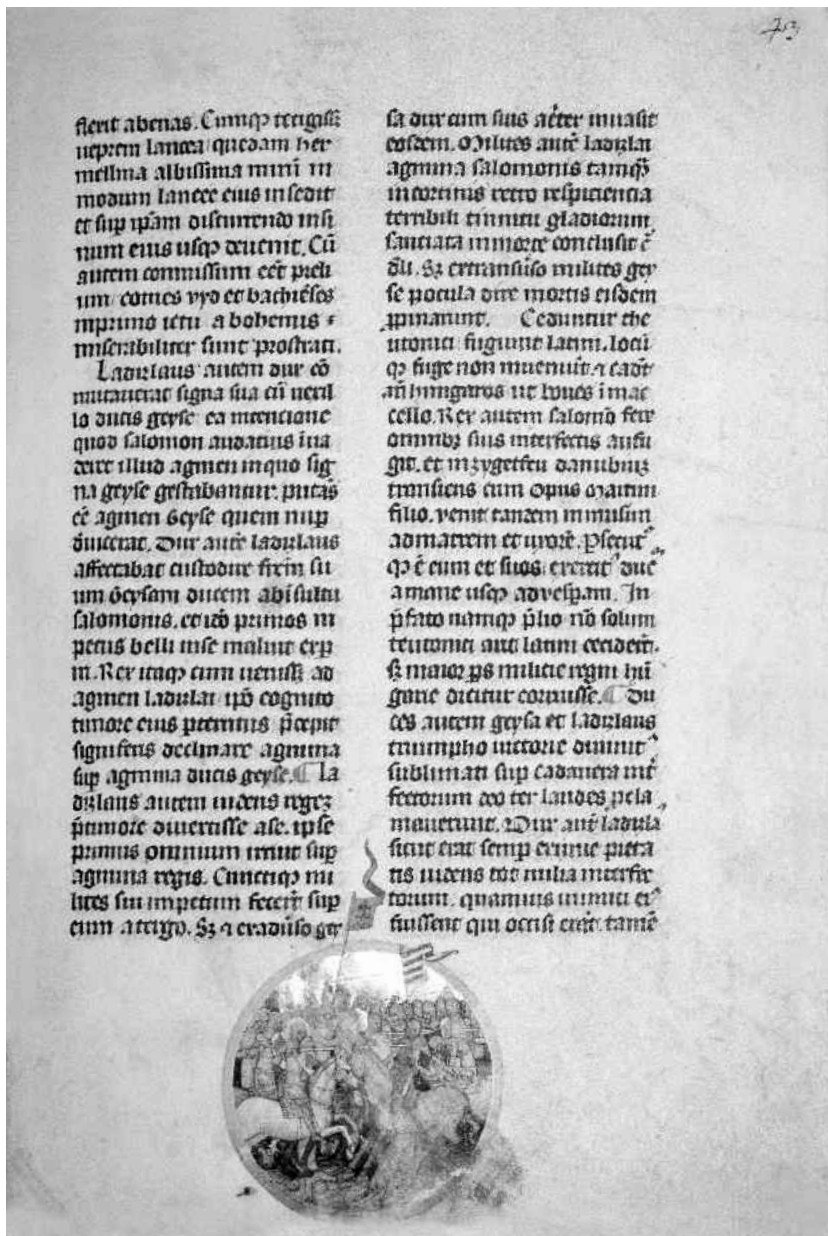 73
flexit abenas. Cumq; tetigiss;
veprem lancea quedam her
mellina albissima mirũ in
modum lancee eius insedit
et sup ip̃am discurrendo in si
num eius usq; deuenit. Cũ
autem commissum eẽt preli
um comes vyd et bachiẽses
in primo ictu a bohemis
miserabiliter sunt prostrati.
Ladizlaus autem dux cõ
mutauerat signa sua cũ vexil
lo ducis geyse ea intencione
quod salomon audatius īua
deret illud agmen in quo sig
na geyse gestabantur. putãs
eẽ agmen Geyse quem nup
deuicerat. Dux autẽ ladizlaus
affectabat custodire fr̃em su
um Geysam ducem ab īsultu
salomonis. et ideo primos in
petus belli in se maluit expi
ri. Rex itaq; cum uenisset ad
agmen ladizlai ip̃o cognito
timore eius p̃territus p̃cepit
signiferis declinare agmina
sup agmina ducis geyse. La
dizlaus autem uidens regez
p̃ timore diuertisse a se. ipse
primus omnium irruit sup
agmina regis. Cunctiq; mi
lites sui impetum fecerũt sup
eum a tergo. Sz ⁊ ex aduerso gey
sa dux cum suis acriter inuasit
eosdem. Milites autẽ ladizlai
agmina salomonis tamq̃
in cortinis retro respiciencia
terribili tinnitu gladiorum
sauciata in morte conclusit
Sz ex transuerso milites gey
se pocula dire mortis eisdem
propinarunt. Ceduntur the
utonici fugiunt latini. locũ
q; fuge non inueniũt. ⁊ cadũt
añ hungaros ut boues ī mac
cello. Rex autem salomõ fere
omnibz suis interfectis aufu
git. et in zygetfeu danubiuz
transiens cum Opus Martini
filio. venit tandem in musun
ad matrem et uxorẽ. p̃secut
q; ẽ eum et suos exercit ducẽ
a mane usq; ad vesp̃am. In
p̃fato namq; p̃lio nõ solum
teutonici aut latini cecider̃t.
sz maior p̃s milicie regni hũ
garie dicitur corruisse. Du
ces autem geysa et ladizlaus
triumpho uictorie diuinit
sublimati sup cadauera int̃
fectorum deo ter laudes pela
mauerunt. Dux autẽ ladizla
sicut erat semp eximie pieta
tis uidens tot milia interfec
torum. quamuis inimici ei
fuissent qui occisi erãt. tamẽ